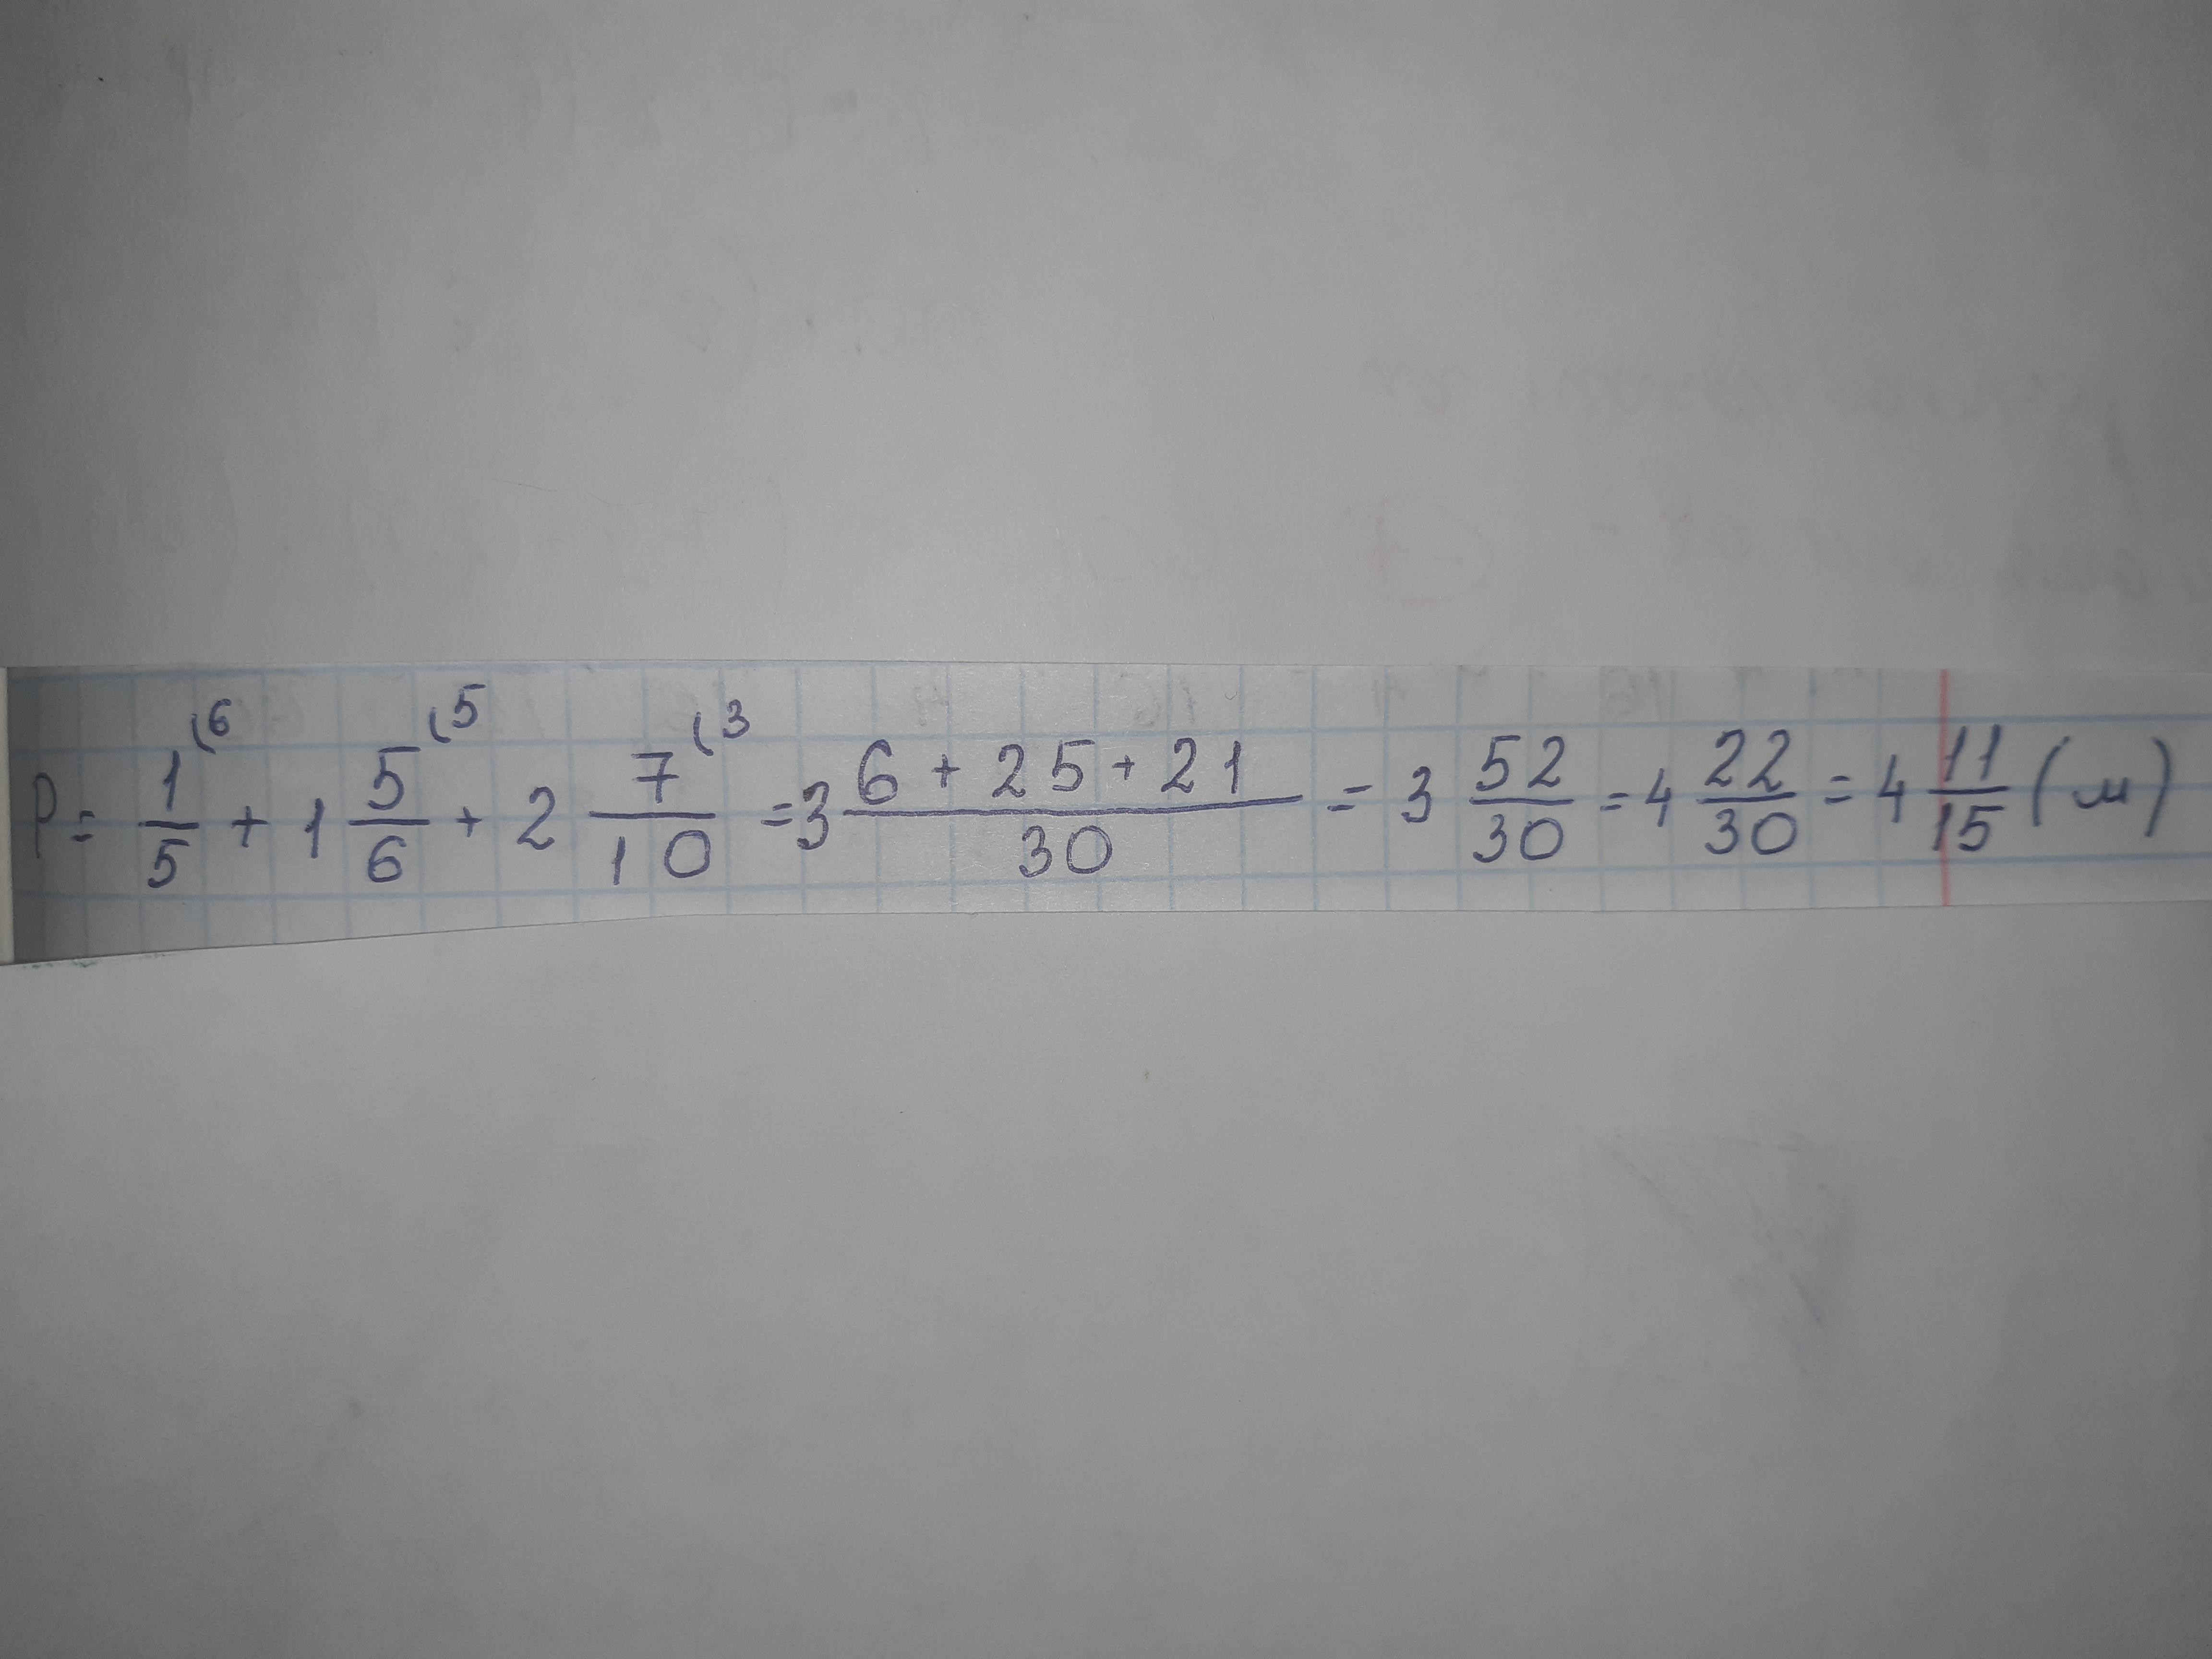 P = 1/5 (6 + 1 5/6 (5 + 2 7/10 (3 = 3 (6 + 25 + 21)/30 = 3 52/30 = 4 22/30 = 4 11/15 (м)